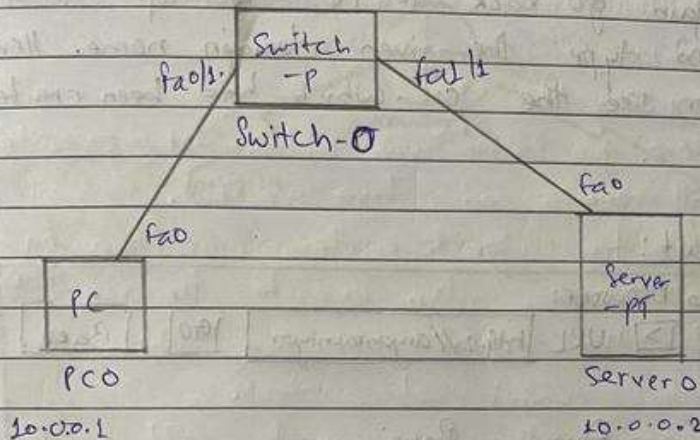 Switch
-P
fa0/1.
fa1/1
Switch-0
fa0
fa0
PC
Server
-PT
PC0
Server 0
10.0.0.1